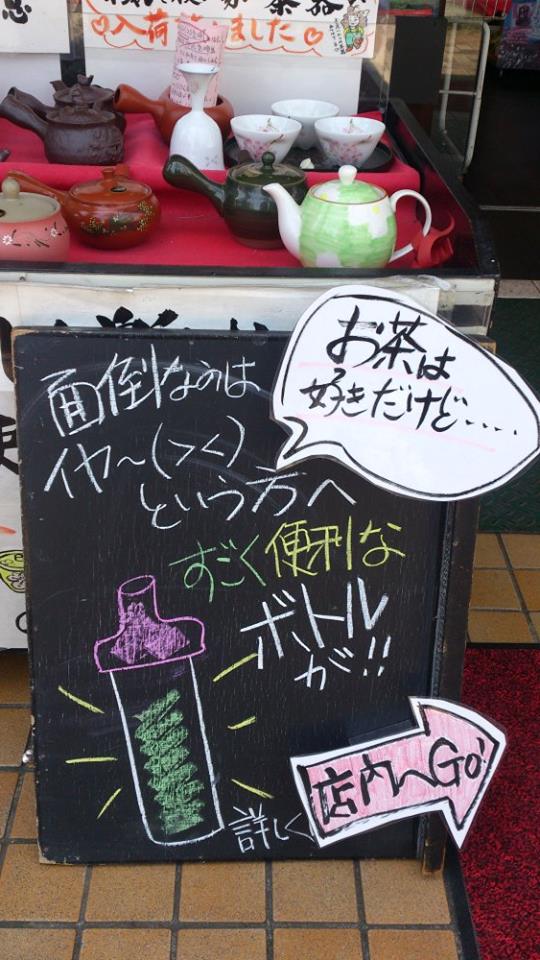 入荷しました
お茶は
好きだけど....
面倒なのは
イヤ〜(>＜)
という方へ
すごく便利な
ボトル
が!!
詳しく
店内へGO!